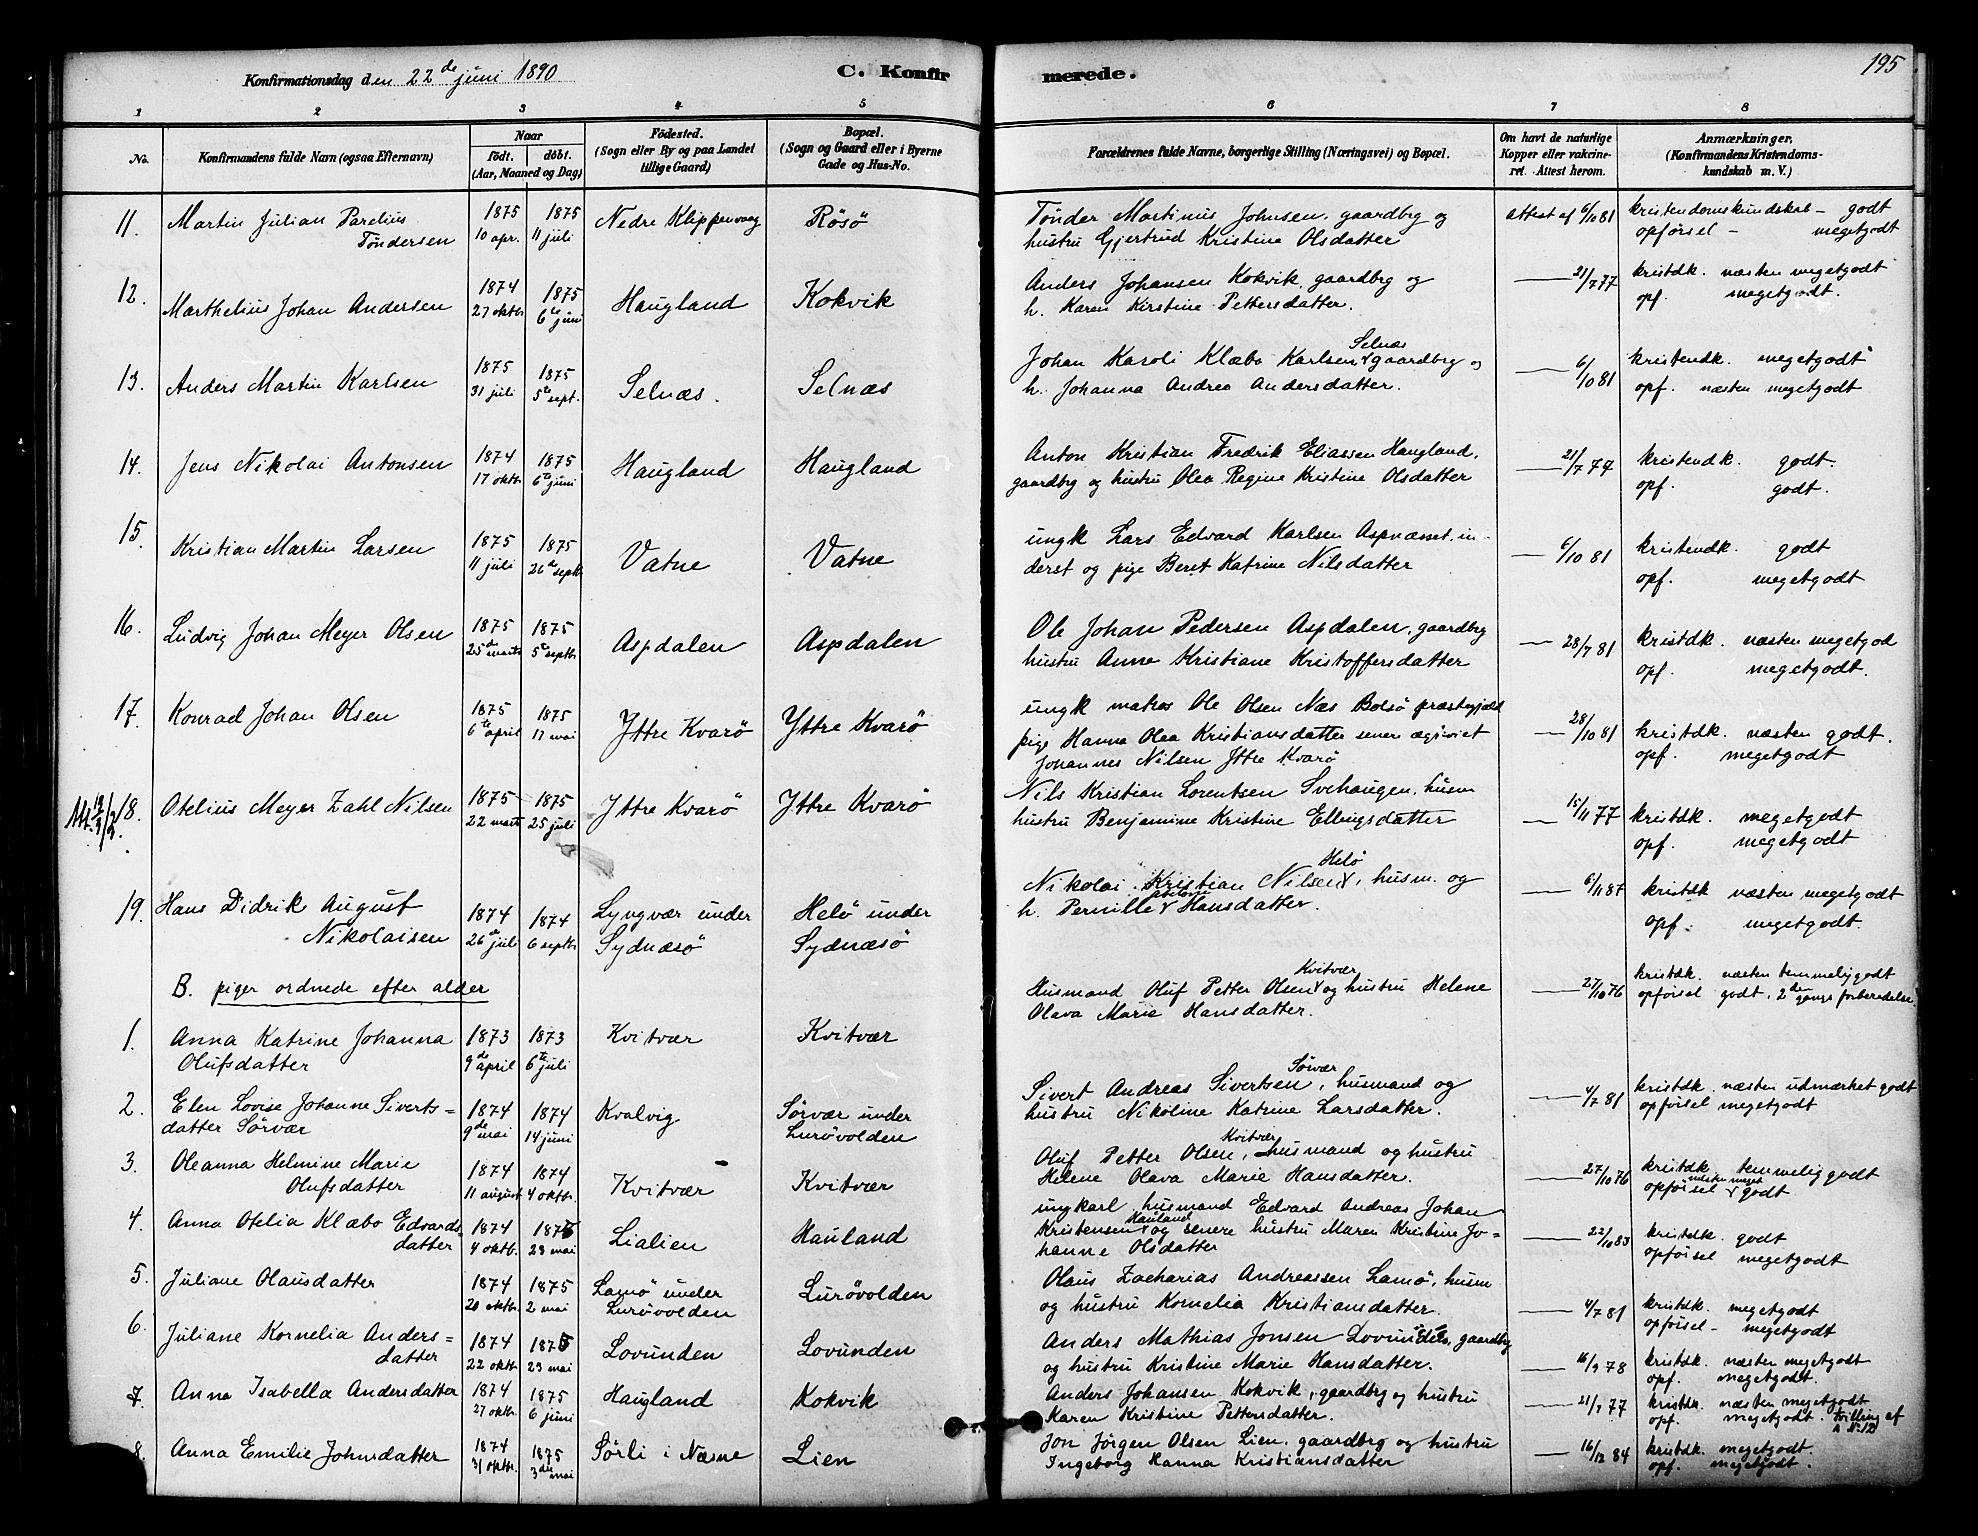 Konfirmationsdag den 22de juni 1890
C. Konfirmerede.
195
1 2 3 4 5 6 7 8
No.
Konfirmandens fulde Navn (ogsaa Efternavn)
Naar
födt. döbt.
(Aar, Maaned og Dag)
Födested.
(Sogn eller By og paa Landet
tillige Gaard)
Bopæl.
(Sogn og Gaard eller i Byerne
Gade og Hus-No.
Forældrenes fulde Navne, borgerlige Stilling (Næringsvei) og Bopæl.
Om havt de naturlige
Kopper eller vakcine-
ret. Attest herom.
Anmærkninger,
(Konfirmandens Kristendoms-
kundskab m. V.)
11. Martin Julian Parelius
Töndersen
1875
10 apr.
1875
11 juli
Nedre Klippenvaag
Rösö
Tönder Martinus Johnsen, gaardbrg og
hustru Gjertrud Kristine Olsdatter
Attest af 6/10 81
kristendomskundskab - godt
opförsel - megetgodt
12. Marthelius Johan Andersen
1874
27 oktbr
1875
6te juni
Haugland
Kokvik
Anders Johansen Kokvik, gaardbrg og
h. Karen Kirstine Pettersdatter.
— 21/7 77
kristdk. næsten megetgodt
opf. megetgodt.
13. Anders Martin Karlsen
1875
31 juli
1875
5te sept.
Selnæs.
Selnæs
Selnæs
Johan Karoli Klæbo Karlsen, gaardbrg og
h. Johanna Andrea Andersdatter.
— 6/10 81
kristendk. megetgodt
opf. næsten megetgodt
14. Jens Nikolai Antonsen
1874
17 oktbr
1875
6te juni
Haugland
Haugland
Anton Kristian Fredrik Eliassen Haugland,
gaardbrg og hustru Olea Regine Kristine Olsdatter
— 21/7 77
kristendk. godt.
opf. godt.
15. Kristian Martin Larsen
1875
11 juli
1875
26de septbr
Vatne
Vatne
ungk Lars Edvard Karlsen Aspnæsset, in-
derst og pige Beret Katrine Nilsdatter
— 6/10 81
kristendk. godt
opf. megetgodt
16. Ludvig Johan Meyer Olsen
1875
25de marts
1875
5te septbr
Aspdalen
Aspdalen
Ole Johan Pedersen Aspdalen, gaardbrg
hustru Anne Kristiane Kristoffersdatter
— 28/7 81
kristdk. næsten megetgod
opf. megetgodt.
17. Konrad Johan Olsen
1875
6te april
1875
17 mai
Yttre Kvarö
Yttre Kvarö
ungk Ole Olsen Næs Bolsö præstegjæld
pige Hanna Olea Kristiansdatter sener ægtviet
Johannes Nilsen Yttre Kvarö
— 28/10 81
kristdk. næsten godt.
opf. megetgodt
18. Otelius Meyer Zahl Nilsen
1875
22 marts
1875
25 juli
Yttre Kvarö
Yttre Kvarö
Nils Kristian Lorentsen Svehaugen, husm
hustru Benjamine Kristine Ellingsdatter
— 15/11 77
kristdk. megetgodt
opf. megetgodt
19. Hans Didrik August
Nikolaisen
1874
26de juli
1874
6 septbr
Lyngvær under
Sydnæsö
Helö under
Sydnæsö
Helö
Nikolai Kristian Nilsen, husm. og
h. Pernille Hansdatter.
— 6/11 87
kristdk næsten megetgodt
opf. megetgodt.
B. piger ordnede efter alder
1. Anna Katrine Johanna
Olufsdatter
1873
9de april
1873
6te juli
Kvitvær
Kvitvær
Kvitvær
Husmand Oluf Petter Olsen og hustru Helene
Olava Marie Hansdatter.
— 27/10 76
kristdk. næsten temmelig godt
opförsel godt, 2den gangs forberedelse.
2. Elen Lovise Johanne Siverts=
datter Sörvær
1874
9de mai
1874
14 juni
Kvalvig
Sörvær under
Lurövolden
Sörvær
Sivert Andreas Sivertsen, husmand og
hustru Nikoline Katrine Larsdatter.
— 4/7 81
kristdk. næsten udmærket godt
opförsel megetgodt
3. Oleanna Helmine Marie
Olufsdatter
1874
11 august
1874
4 oktbr.
Kvitvær
Kvitvær
Kvitvær
Oluf Petter Olsen, husmand og hustru
Helene Olava Marie Hansdatter.
— 27/10 76
kristdk. temmelig godt
næsten meget
opförsel godt
4. Anna Otelia Klæbo Edvards=
datter
1874
4 oktb.
1875
23 mai
Lialien
Hauland
ungkarl, husmand Edvard Andreas Johan
Hauland
Kristensen og senere hustru Maren Kristine Jo=
hanne Olsdatter
— 22/10 83
kristdk. godt
opförsel megetgodt
5. Juliane Olausdatter
1874
20 oktbr
1875
2 mai
Lamö under
Lurövolden
Lurövolden
Olaus Zacharias Andreassen Lamö, husm
og hustru Kornelia Kristiansdatter.
— 4/7 81
kristdk. megetgodt
opförsel - megetgodt
6. Juliane Kornelia Anders=
datter
1874
22 oktbr
1875
23 mai
Lovunden
Lovunden
Anders Mathias Jonsen Lovunden, gaardbrg
og hustru Kristine Marie Hansdatter.
— 16/9 78
kristdk. næsten megetgodt
opf. megetgodt.
7. Anna Isabella Andersdatter
1874
27 oktbr
1875
6 juni
Haugland
Kokvik
Anders Johansen Kokvik, gaardbrg og hustru
Karen Kristine Pettersdatter.
— 21/7 77
kristdk. næsten megetgodt
opf. megetgodt. tvilling af
No. 12
8. Anna Emilie Johnsdatter
1874
31 oktbr.
1875
3de mai
Sörli i Næsne
Lien
Jon Jörgen Olsen Lien, gaardbrg og hustru
Ingeborg Hanna Kristiansdatter
— 16/12 84
kristdk. megetgodt.
opf. megetgodt.